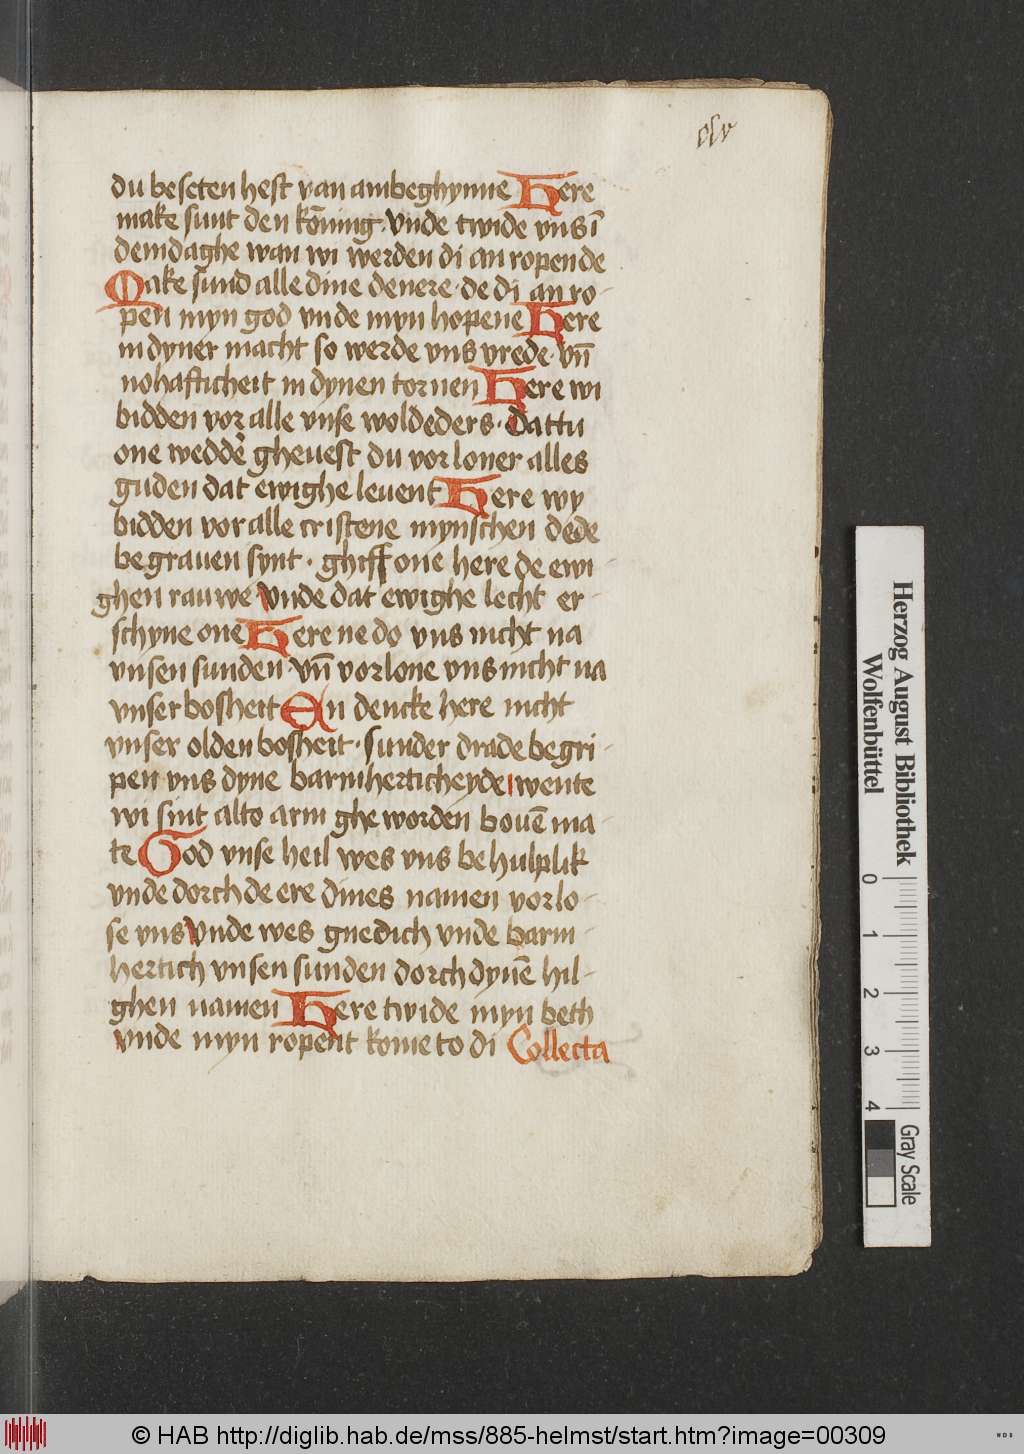 clv
du beseten hest van ambeghynne Here
make sunt den kōning · vnde twide vns ī
dem daghe wan wi werden di an ropende
Make sund alle dine denere · de di an ro-
pen myn god vnde myn hopene Here
in dyner macht so werde vns vrede · vn̄
nohafticheit in dynen tornen Here wi
bidden vor alle vnse woldeders · dattu
one wedder gheuest du vorloner alles
guden dat ewighe leuent Here wy
bidden vor alle cristene mynschen de de
begrauen synt · ghiff one here de ewi-
ghen rauwe vnde dat ewighe lecht er-
schyne one Here ne do vns nicht na
vnsen sunden · vn̄ vorlone vns nicht na
vnser bosheit En dencke here nicht
vnser olden bosheit · sunder drade begri-
pen vns dyne barmherticheyde wente
wi sint alto arm gheworden bouē ma-
te God vnse heil wes vns behulplik
vnde dorch de ere dines namen vorlo-
se vns vnde wes gnedich vnde barm-
hertich vnsen sunden dorch dynē hil-
ghen namen Here twide myn beth
vnde myn ropent kome to di Collecta
Herzog August Bibliothek
Wolfenbüttel
0 1 2 3 4
Gray Scale
© HAB http://diglib.hab.de/mss/885-helmst/start.htm?image=00309